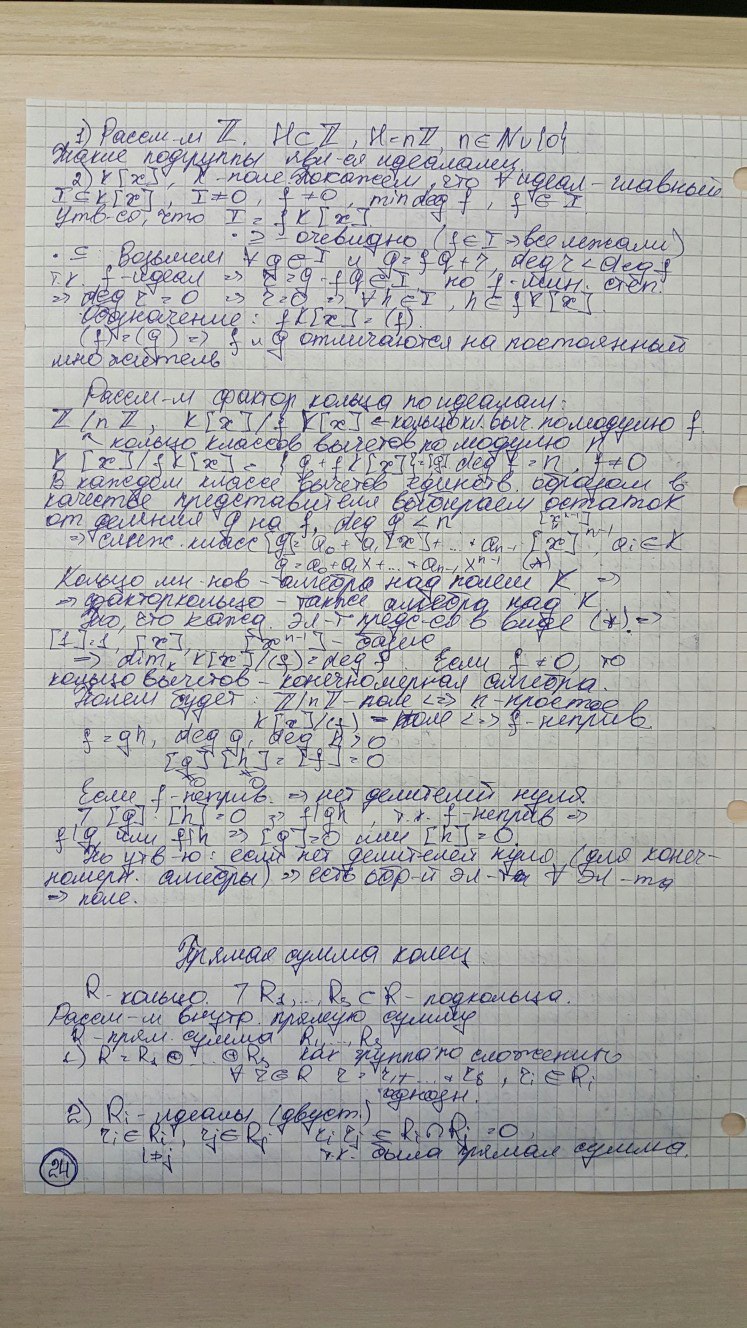 1) Рассм-м ℤ. H⊂ℤ, H=nℤ, n∈N∪{0}
Такие подгруппы явл-ся идеалами.
2) K[x], K-поле. Покажем, что ∀ идеал - главный
I⊆K[x], I≠0, f≠0, min deg f, f∈I.
Утв-ся, что I = fK[x].
• ⊇ - очевидно (f∈I ⇒ все лежали)
• ⊆ Возьмем ∀g∈I и g=fq+r, deg r<deg f
т.к. f-идеал ⇒ r=g-fq∈I, но f-мин. степ.
⇒ deg r=0 ⇒ r=0 ⇒ ∀h∈I, h∈fK[x]
Обозначение: fK[x]=(f).
(f)=(g) ⇒ f и g отличаются на постоянный
множитель
Рассм-м фактор кольца по идеалам:
ℤ/nℤ, K[x]/fK[x] ← кольцо кл. выч. по модулю f.
↖ кольцо классов вычетов по модулю n
K[x]/fK[x] = {g+fK[x]}=[g] deg f=n, f≠0
В каждом классе вычетов единств. образом в
качестве представителя выбираем остаток
от деления g на f, deg g<n
[x^{n-1}]
⇒ смеж. класс [g]=a₀+a₁[x]+...+aₙ₋₁[x]^{n-1}, aᵢ∈K
g=a₀+a₁x+...+aₙ₋₁x^{n-1} (*)
Кольцо мн-нов - алгебра над полем K ⇒
⇒ факторкольцо - также алгебра над K
То, что кажд. эл-т предс-ся в виде (*) ⇒
[1]=1, [x], ... [x^{n-1}] - базис
⇒ dimₖ K[x]/(f)=deg f. Если f≠0, то
кольцо вычетов - конечномерная алгебра.
Полем будет: ℤ/nℤ-поле ⇔ n-простое
K[x]/(f) - поле ⇔ f-неприв.
f=gh, deg g, deg h>0
[g] [h]=[f]=0
≠0 ≠0
Если f-неприв. ⇒ нет делителей нуля.
] [g]·[h]=0 ⇒ f|gh, т.к. f-неприв ⇒
f|g или f|h ⇒ [g]=0 или [h]=0
По утв-ю: если нет делителей нуля (для конеч-
номерн. алгебры) ⇒ есть обр-й эл-т ∀ эл-та
⇒ поле.
Прямая сумма колец.
R-кольцо. ] R₁,...,Rₛ⊂R-подкольца.
Рассм-м внутр. прямую сумму
R-прям. сумма R₁,...,Rₛ
1) R=R₁⊕...⊕Rₛ как группа по сложению
∀r∈R r=r₁+...+rₛ, rᵢ∈Rᵢ
однозн.
2) Rᵢ-идеалы (двуст.)
rᵢ∈Rᵢ, rⱼ∈Rⱼ rᵢrⱼ∈Rᵢ∩Rⱼ=0,
i≠j т.к. была прямая сумма.
24